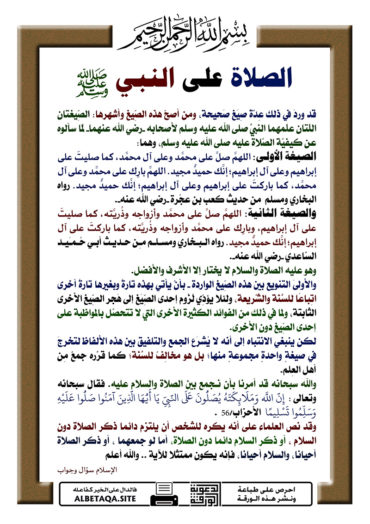 بسم الله الرحمن الرحيم
الصلاة على النبي صلى الله عليه وسلم
قد ورد في ذلك عدّة صيغ صحيحة، ومن أصحّ هذه الصيغ وأشهرها: الصيغتان
اللتان علّمهما النبيّ صلى الله عليه وسلم لأصحابه ـ رضي الله عنهما ـ لما سألوه
عن كيفيّة الصّلاة عليه صلى الله عليه وسلم، وهما:
الصيغة الأولى: اللهمّ صلّ على محمّد وعلى آل محمّد، كما صليتَ على
إبراهيم وعلى آل إبراهيم؛ إنّك حميدٌ مجيد. اللهمّ بارِك على محمّد وعلى آل
محمّد، كما باركتَ على إبراهيم وعلى آل إبراهيم؛ إنّك حميدٌ مجيد. رواه
البخاري ومسلم من حديث كعب بن عجْرة ـ رضي الله عنه ـ.
والصيغة الثانية: اللهمّ صلّ على محمّد وأزواجه وذُرّيّته، كما صليتَ
على آل إبراهيم، وبارِك على محمّد وأزواجه وذُرّيّته، كما باركتَ على آل
إبراهيم؛ إنّك حميدٌ مجيد. رواه البخاري ومسلم من حديث أبي حُميد
السّاعدي ـ رضي الله عنه ـ.
وهو عليه الصلاة والسلام لا يختار إلا الأشرف والأفضل.
والأولى التنويع بين هذه الصيَغ الواردة ـ بأن يأتي بهذه تارةً وبغيرها تارة أخرى
اتباعا للسّنة والشريعة، ولئلا يؤدّي لزوم إحدى الصيَغ إلى هَجر الصيَغ الأخرى
الثابتة، ولِما في ذلك من الفوائد الكثيرة الأخرى التي لا تتحصّل بالمواظبة على
إحدى الصيَغ دون الأخرى.
لكن ينبغي الانتباه إلى أنه لا يُشرع الجمع والتلفيق بين هذه الألفاظ لتخرج
في صيغةٍ واحدةٍ مجموعةٍ منها؛ بل هو مخالفٌ للسّنة؛ كما قرّره جمعٌ من
أهل العلم.
والله سبحانه قد أمرنا بأن نجمع بين الصلاة والسلام عليه، فقال سبحانه
وتعالى: إِنَّ اللَّهَ وَمَلَائِكَتَهُ يُصَلُّونَ عَلَى النَّبِيِّ يَا أَيُّهَا الَّذِينَ آمَنُوا صَلُّوا عَلَيْهِ
وَسَلِّمُوا تَسْلِيمًا الأحزاب/56 .
وقد نص العلماء على أنه يكره للشخص أن يلتزم دائما ذكر الصلاة دون
السلام ، أو ذكر السلام دائما دون الصلاة، أما لو جمعهما ، أو ذكر الصلاة
أحيانا، والسلام أحيانا، فإنه يكون ممتثلا للآية .. والله أعلم
الإسلام سؤال وجواب
احرص على طباعة
ونشر هذه الورقة
للدعوية
الورقة
فالدال على الخير كفاعله
ALBETAQA.SITE